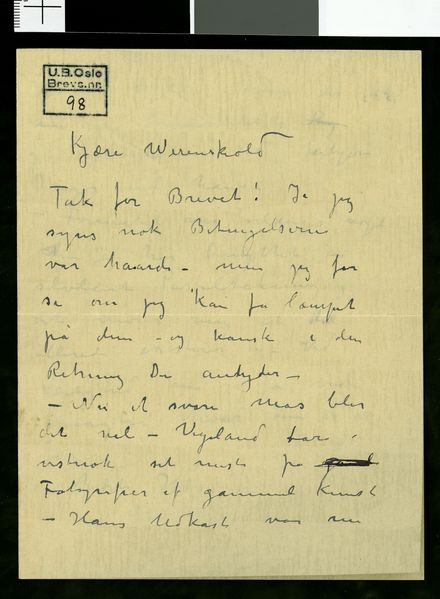 U.B. Oslo
Brevs.nr.
98
Kjære Werenskiold
Tak for Brevet! Ja jeg
synes nok Betingelserne
var haarde – men jeg får
se om jeg kan få lempet
på dem – og kanske i den
Retning De antyder –
– Nu et svare Mas blir
det vel – Vigeland har
vistnok set mest på
Fotografier af gammel Kunst
– Hans Udkast var nu